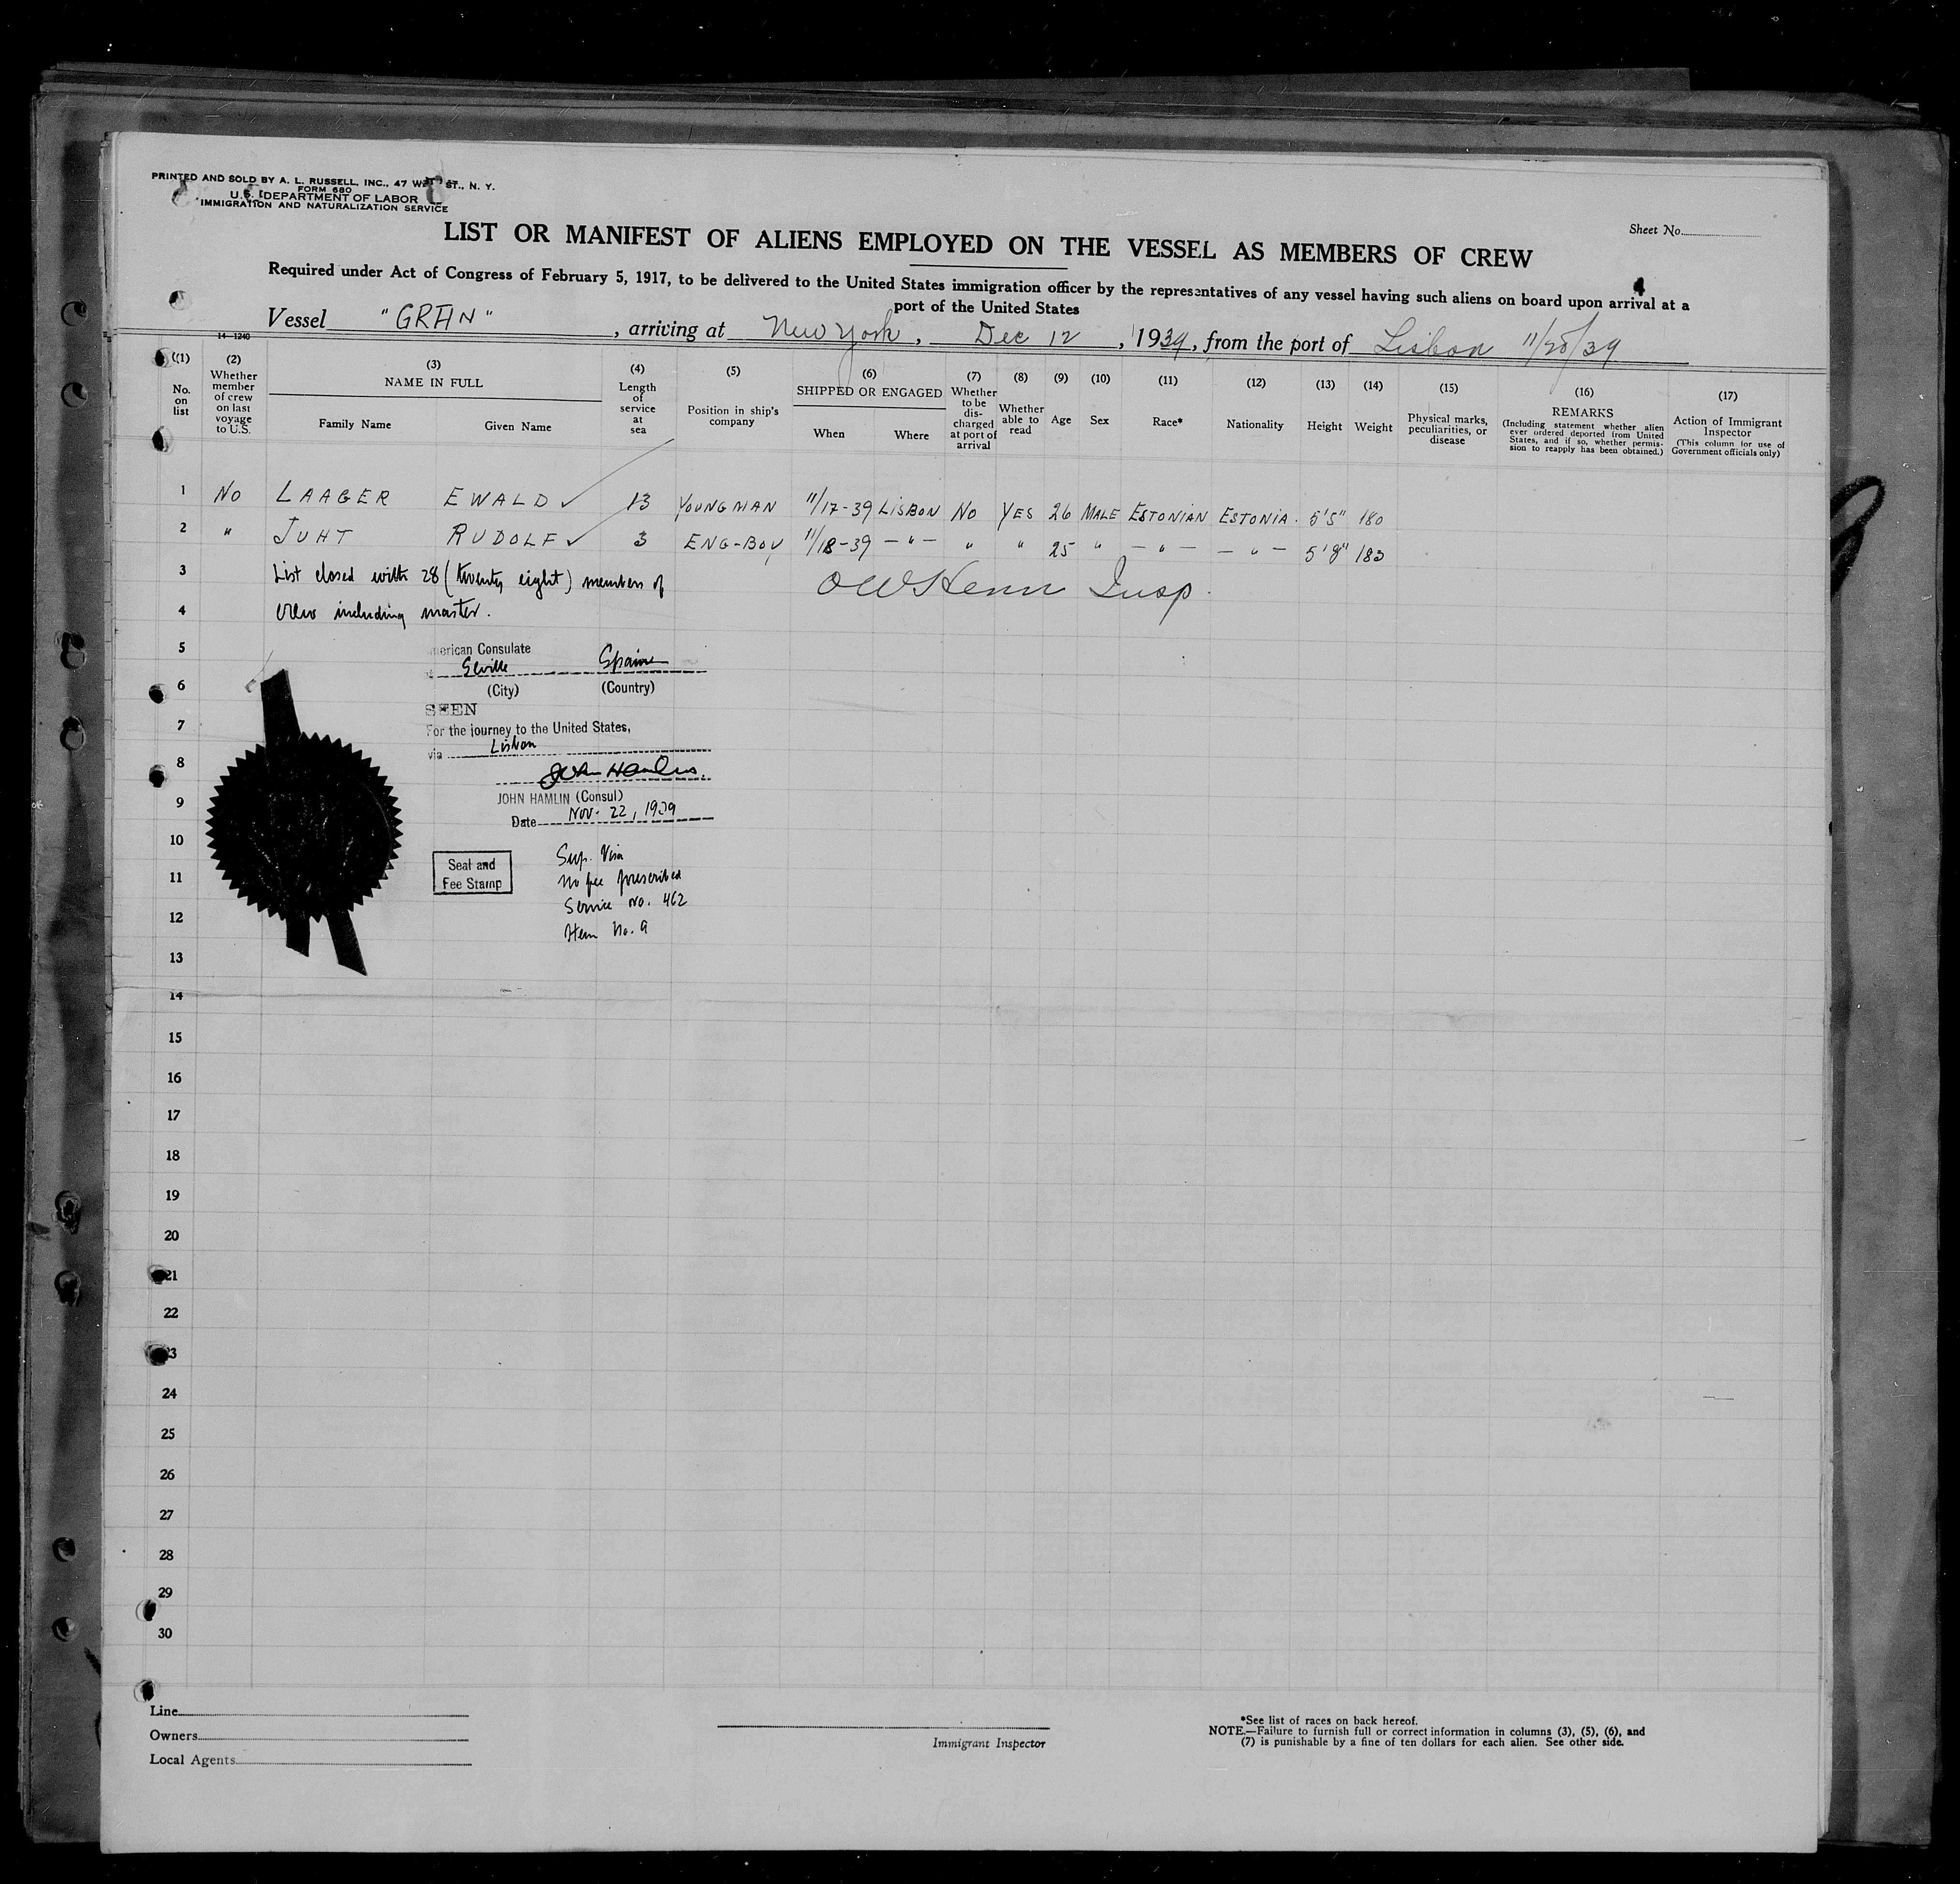 PRINTED AND SOLD BY A. L. RUSSELL, INC., 47 ST., N. Y.
FORM 680
U.S. DEPARTMENT OF LABOR
IMMIGRATION AND NATURALIZATION SERVICE
Sheet No.
LIST OR MANIFEST OF ALIENS EMPLOYED ON THE VESSEL AS MEMBERS OF CREW
Required under Act of Congress of February 5, 1917, to be delivered to the United States immigration officer by the representatives of any vessel having such aliens on board upon arrival at a
port of the United States
Vessel "GRAN", arriving at New York, Dec 12, 1939, from the port of Lisbon 11/20/39
14-1240
(1) No. on list
(2) Whether member of crew on last voyage to U.S.
(3) NAME IN FULL
Family Name Given Name
(4) Length of service at sea
(5) Position in ship's company
(6) SHIPPED OR ENGAGED
When Where
(7) Whether to be discharged at port of arrival
(8) Whether able to read
(9) Age
(10) Sex
(11) Race*
(12) Nationality
(13) Height
(14) Weight
(15) Physical marks, peculiarities, or disease
(16) REMARKS (Including statement whether alien ever ordered deported from United States, and if so, whether permission to reapply has been obtained.)
(17) Action of Immigrant Inspector (This column for use of Government officials only)
1 NO LAAGER EWALD ✓ 13 YOUNGMAN 11/17-39 LISBON NO YES 26 MALE ESTONIAN ESTONIA. 5'5" 180
2 " JUHT RUDOLF ✓ 3 ENG-BOY 11/18-39 -"- " " 25 " -"- -"- 5'8" 183
3 List closed with 28 (twenty eight) members of OWHenn Insp.
4 crew including master.
5 merican Consulate
Seville Spain
6 (City) (Country)
SEEN
7 For the journey to the United States,
via Lisbon
8 John Hamlin.
9 JOHN HAMLIN (Consul)
Date Nov. 22, 1939
10 Sup. Visa
11 Seal and Fee Stamp No fee prescribed
Service No. 462
12 Item No. 9
13
14
15
16
17
18
19
20
21
22
23
24
25
26
27
28
29
30
Line
Owners
Local Agents
Immigrant Inspector
*See list of races on back hereof.
NOTE.—Failure to furnish full or correct information in columns (3), (5), (6), and
(7) is punishable by a fine of ten dollars for each alien. See other side.